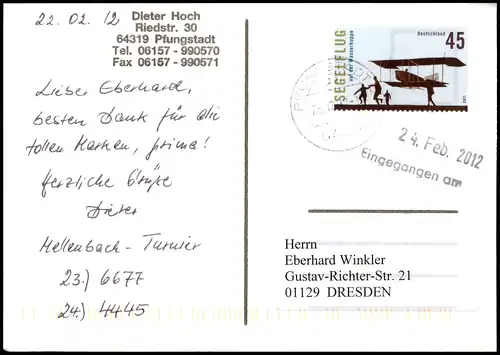 22.02.12
Dieter Hoch
Riedstr. 30
64319 Pfungstadt
Tel. 06157 - 990570
Fax 06157 - 990571
Lieber Eberhard,
besten Dank für die
tollen Marken, prima!
Herzliche Grüße
Dieter
Mellenbach-Turnier
23.) 6677
24.) 4445
SEGELFLUG
auf der Wasserkuppe
Deutschland
45
24. Feb. 2012
Eingegangen am
Herrn
Eberhard Winkler
Gustav-Richter-Str. 21
01129 DRESDEN